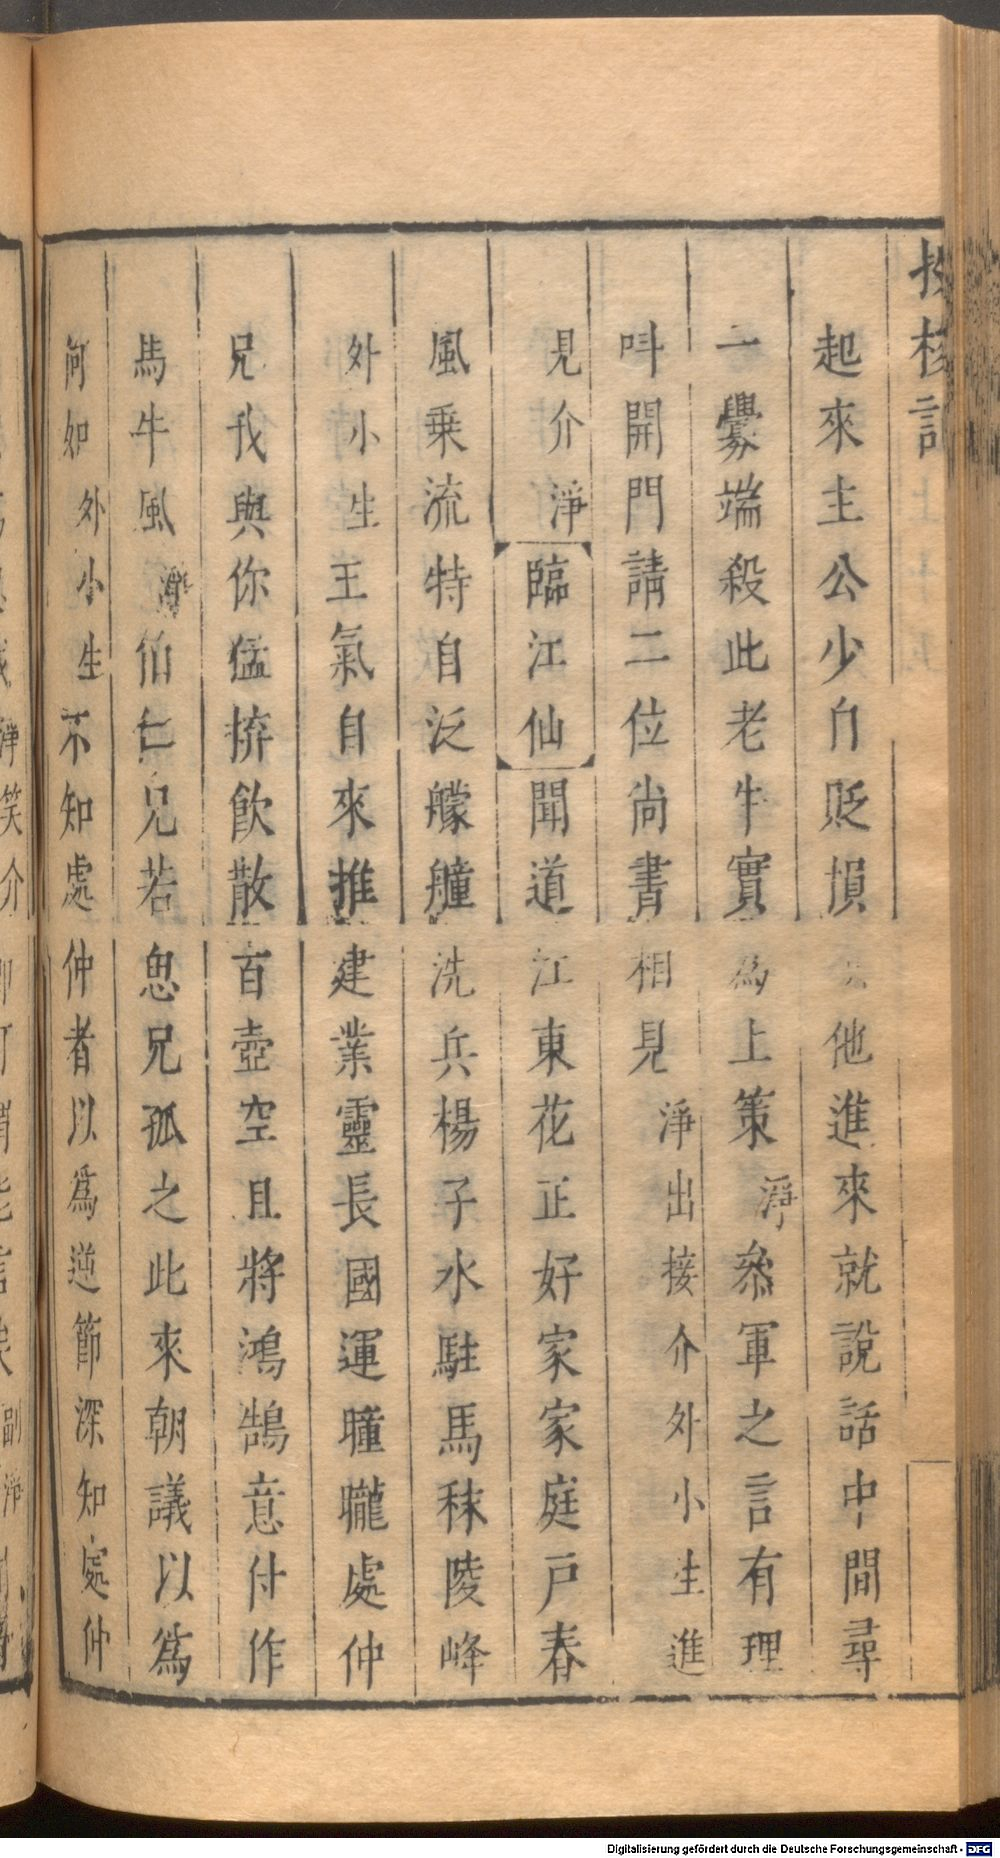 投梭記
起來主公少自貶損 他進來就說話中間尋
一釁端殺此老牛實為上策淨叅軍之言有理
叫開門請二位尚書相見淨出接介外小生進
見介淨臨江仙聞道江東花正好家家庭戶春
風乗流特自泛艨艟洗兵楊子水駐馬秣陵峰
外小生王氣自來推建業靈長國運曈曨處仲
兄我與你猛拚飲散百壺空且將鴻鵠意付作
馬牛風淨伯仁兄若思兄孤之此來朝議以為
何如外小生不知處仲者以爲逆節深知處仲
淨笑介
副淨
Digitalisierung gefördert durch die Deutsche Forschungsgemeinschaft - DFG